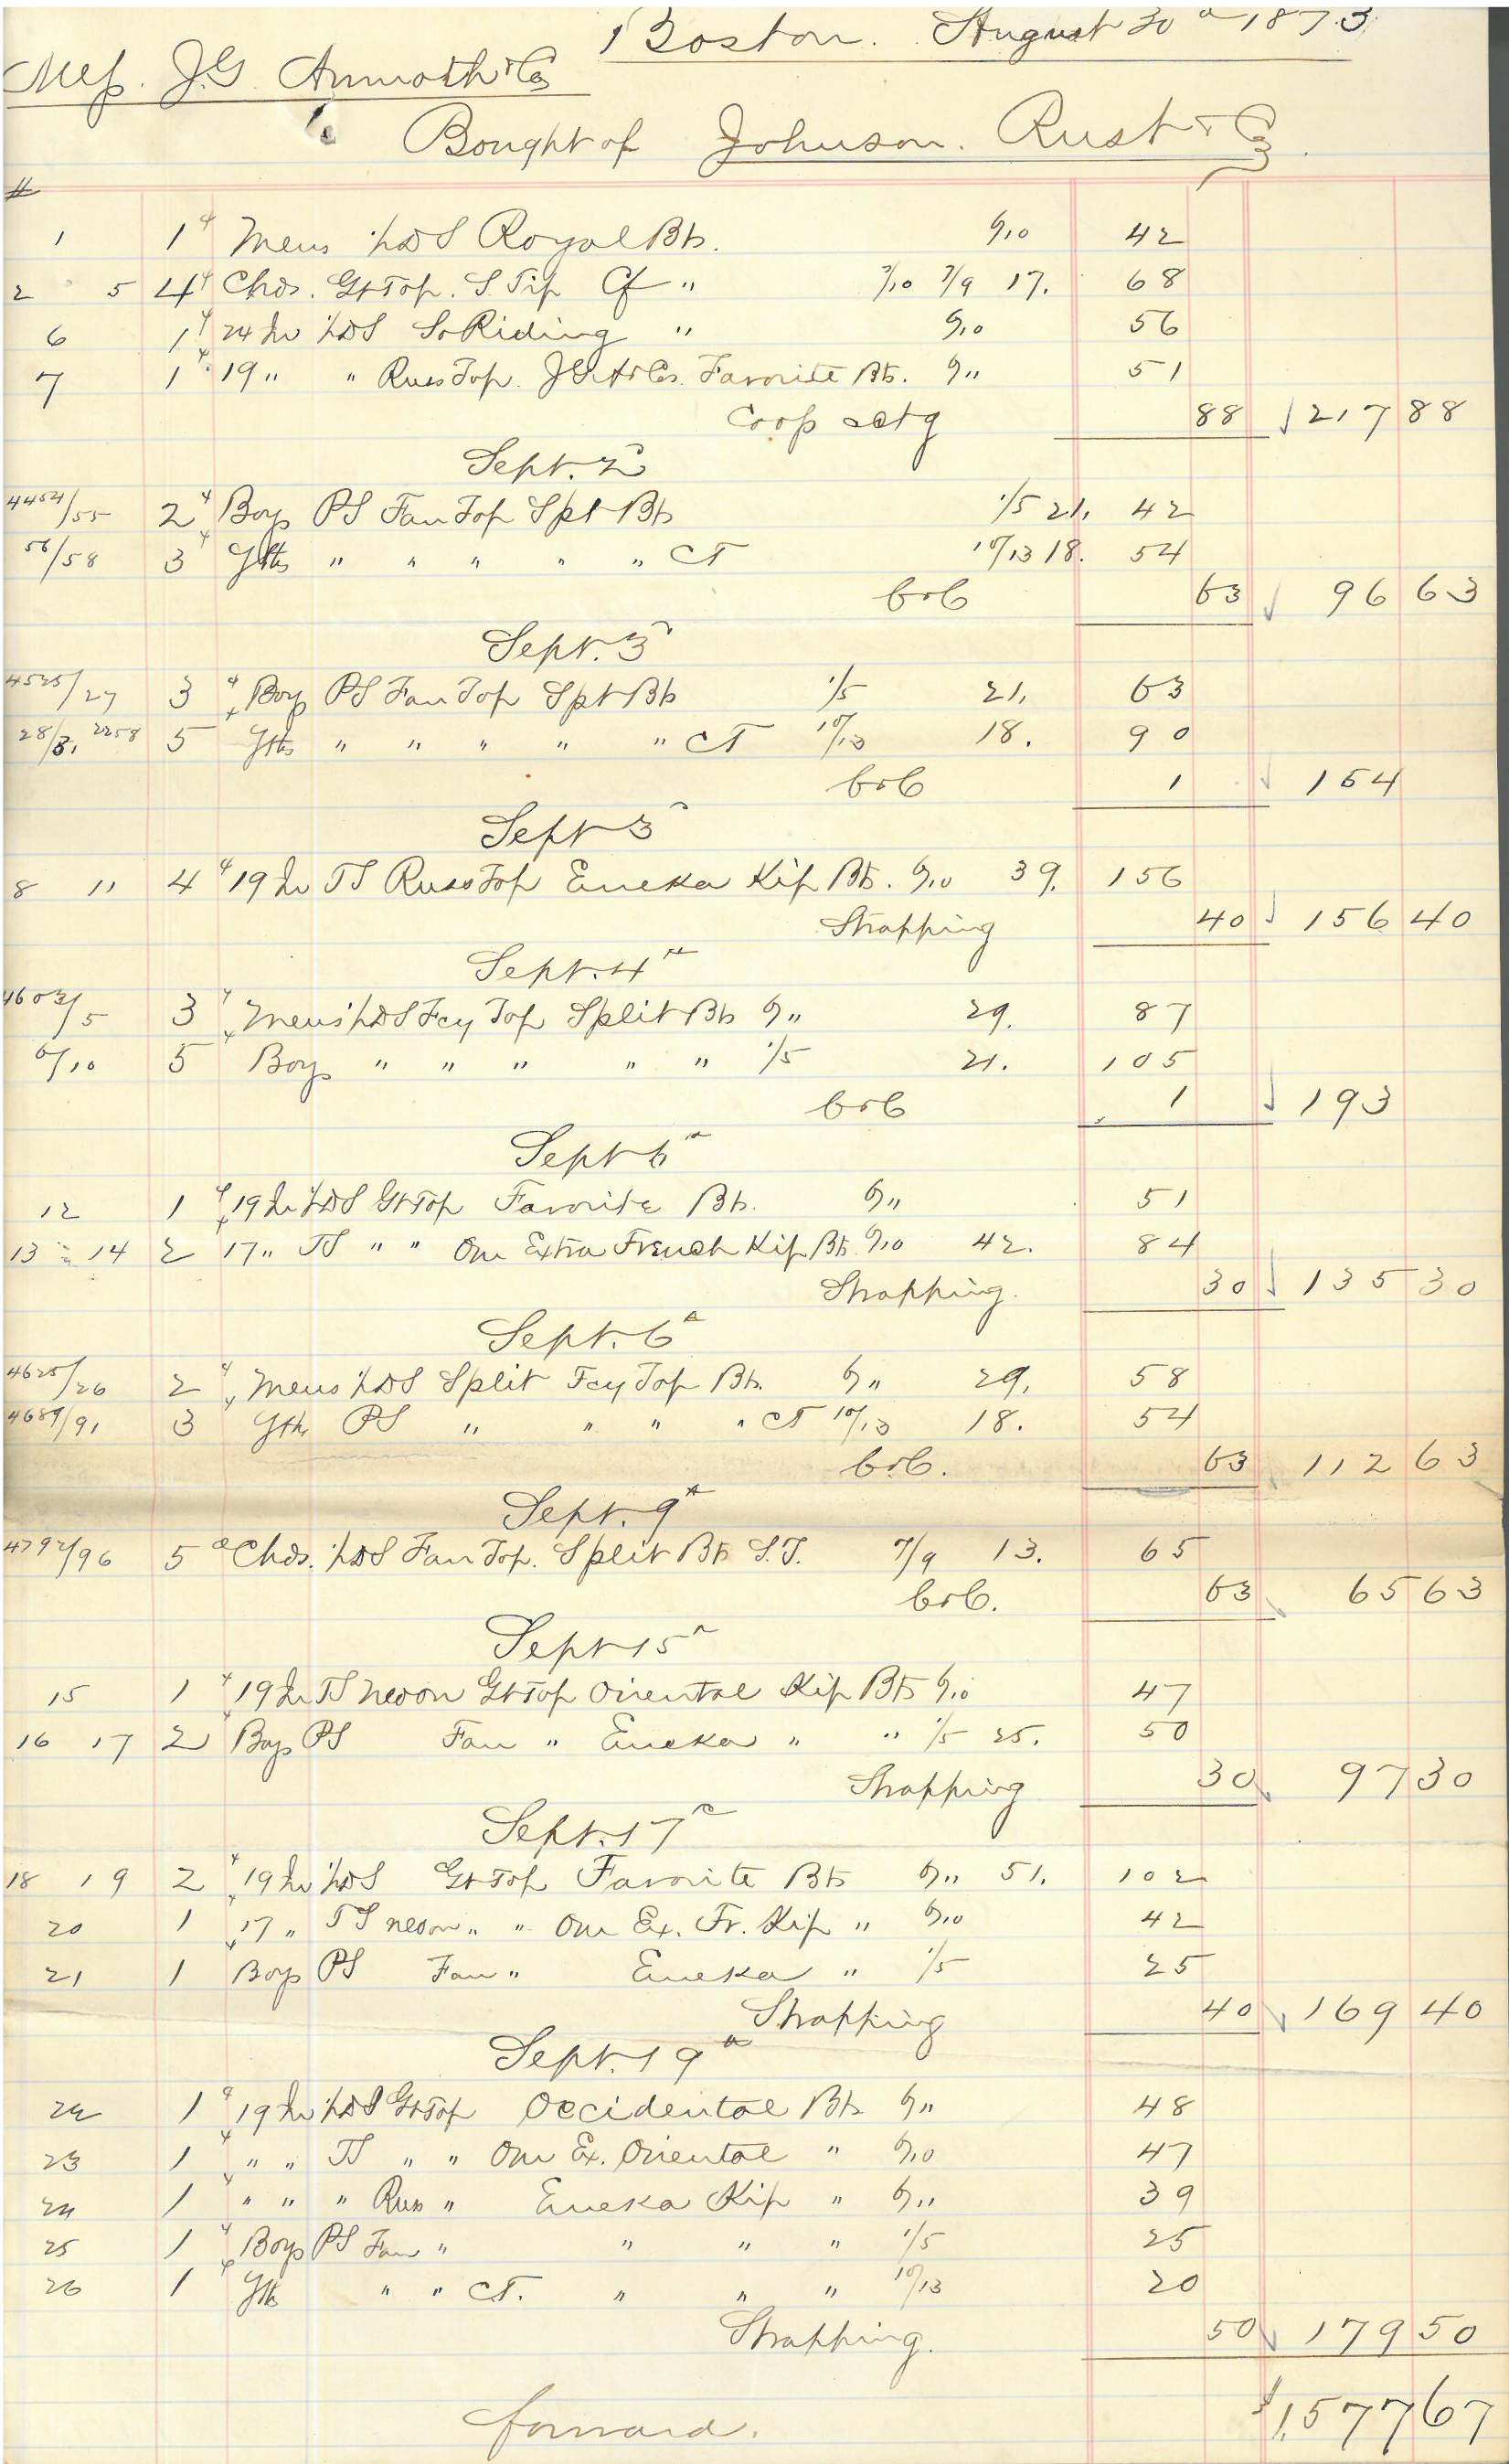 Boston. August 30th 1873
Mess. J.G. & Co
Bought of Johnson. Rust & Co
#
1 1 Mens S Royal Bts. 6/10 42
2 5 4 Chds. Gt Top. S. Tip Cf " 7/10 7/9 17. 68
6 1 24 In S Riding " 6/10 56
7 1 19 " " Russ Top. J.G.A & Co. Favorite Bts. 6/11 51
Coop & ctg 88 217 88
Sept. 2
4454/55 2 Boys PS Fan Top Splt Bts 1/5 21. 42
56/58 3 Yths " " " " " CT 10/13 18. 54
bxb 63 96 63
Sept. 3
4525/27 3 Boys PS Fan Top Splt Bts 1/5 21. 63
28/31 2258 5 Yths " " " " " CT 10/13 18. 90
bxb 1 154
Sept 3
8 11 4 19 In TS Russ Top Eureka Kip Bts. 6/10 39. 156
Strapping 40 156 40
Sept. 4th
4603/5 3 Mens S Fcy Top Split Bts 6/11 29. 87
6/10 5 Boys " " " " " 1/5 21. 105
bxb 1 193
Sept 6th
12 1 19 In S Gt Top Favorite Bts. 6/11 51
13 14 2 17 " TS " " Our Extra French Kip Bts. 6/10 42. 84
Strapping. 30 135 30
Sept. 6th
4625/26 2 Mens S Split Fcy Top Bts. 6/11 29. 58
4689/91 3 Yths PS " " " " CT 10/13 18. 54
bxb. 63 112 63
Sept. 9th
4792/96 5 Chds. S Fan Top. Split Bts S.T. 7/9 13. 65
bxb. 63 65 63
Sept 15th
15 1 19 In TS Gt Top Oriental Kip Bts 6/10 47
16 17 2 Boys PS Fan " Eureka " " 1/5 25. 50
Strapping 30 97 30
Sept. 17th
18 19 2 19 In S Gt Top Favorite Bts 6/11 51. 102
20 1 17 " TS " " Our Ex. Fr. Kip " 6/10 42
21 1 Boys PS Fan " Eureka " 1/5 25
Strapping 40 169 40
Sept. 19th
22 1 19 In S Gt Top Occidental Bts. 6/11 48
23 1 " " TS " " Our Ex. Oriental " 6/10 47
24 1 " " " Russ " Eureka Kip " 6/11 39
25 1 Boys PS Fan " " " " 1/5 25
26 1 Yths " " CT. " " " 10/13 20
Strapping. 50 179 50
forward. $1,577 67